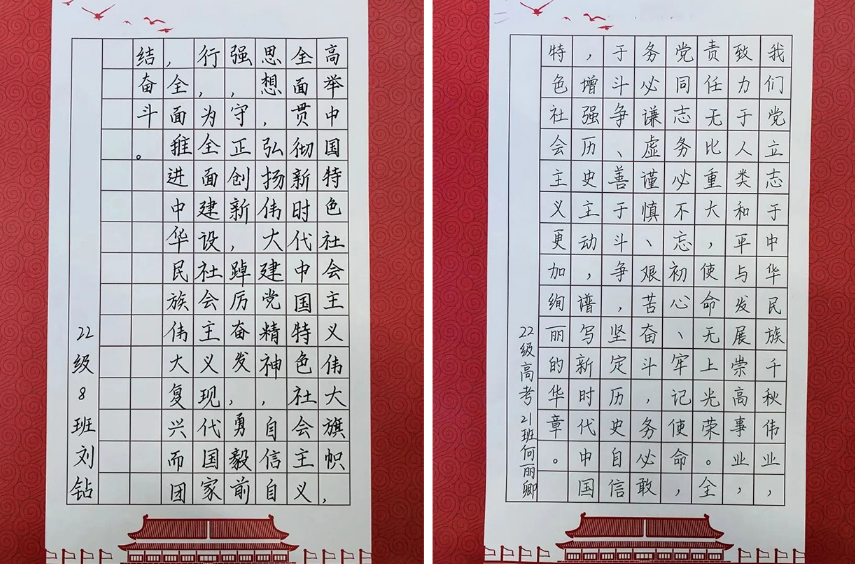 高举中国特色社会主义伟大旗帜，
全面贯彻新时代中国特色社会主义
思想，弘扬伟大建党精神，自信自
强，守正创新，踔厉奋发，勇毅前
行，为全面建设社会主义现代国家
，全面推进中华民族伟大复兴而团
结奋斗。
22级8班刘钻
我们党立志于中华民族千秋伟业，
致力于人类和平与发展崇高事业，
责任无比重大，使命无上光荣。全
党同志务必不忘初心、牢记使命，
务必谦虚谨慎、艰苦奋斗，务必敢
于斗争、善于斗争，坚定历史自信
，增强历史主动，谱写新时代中国
特色社会主义更加绚丽的华章。
22级高考21班何丽卿